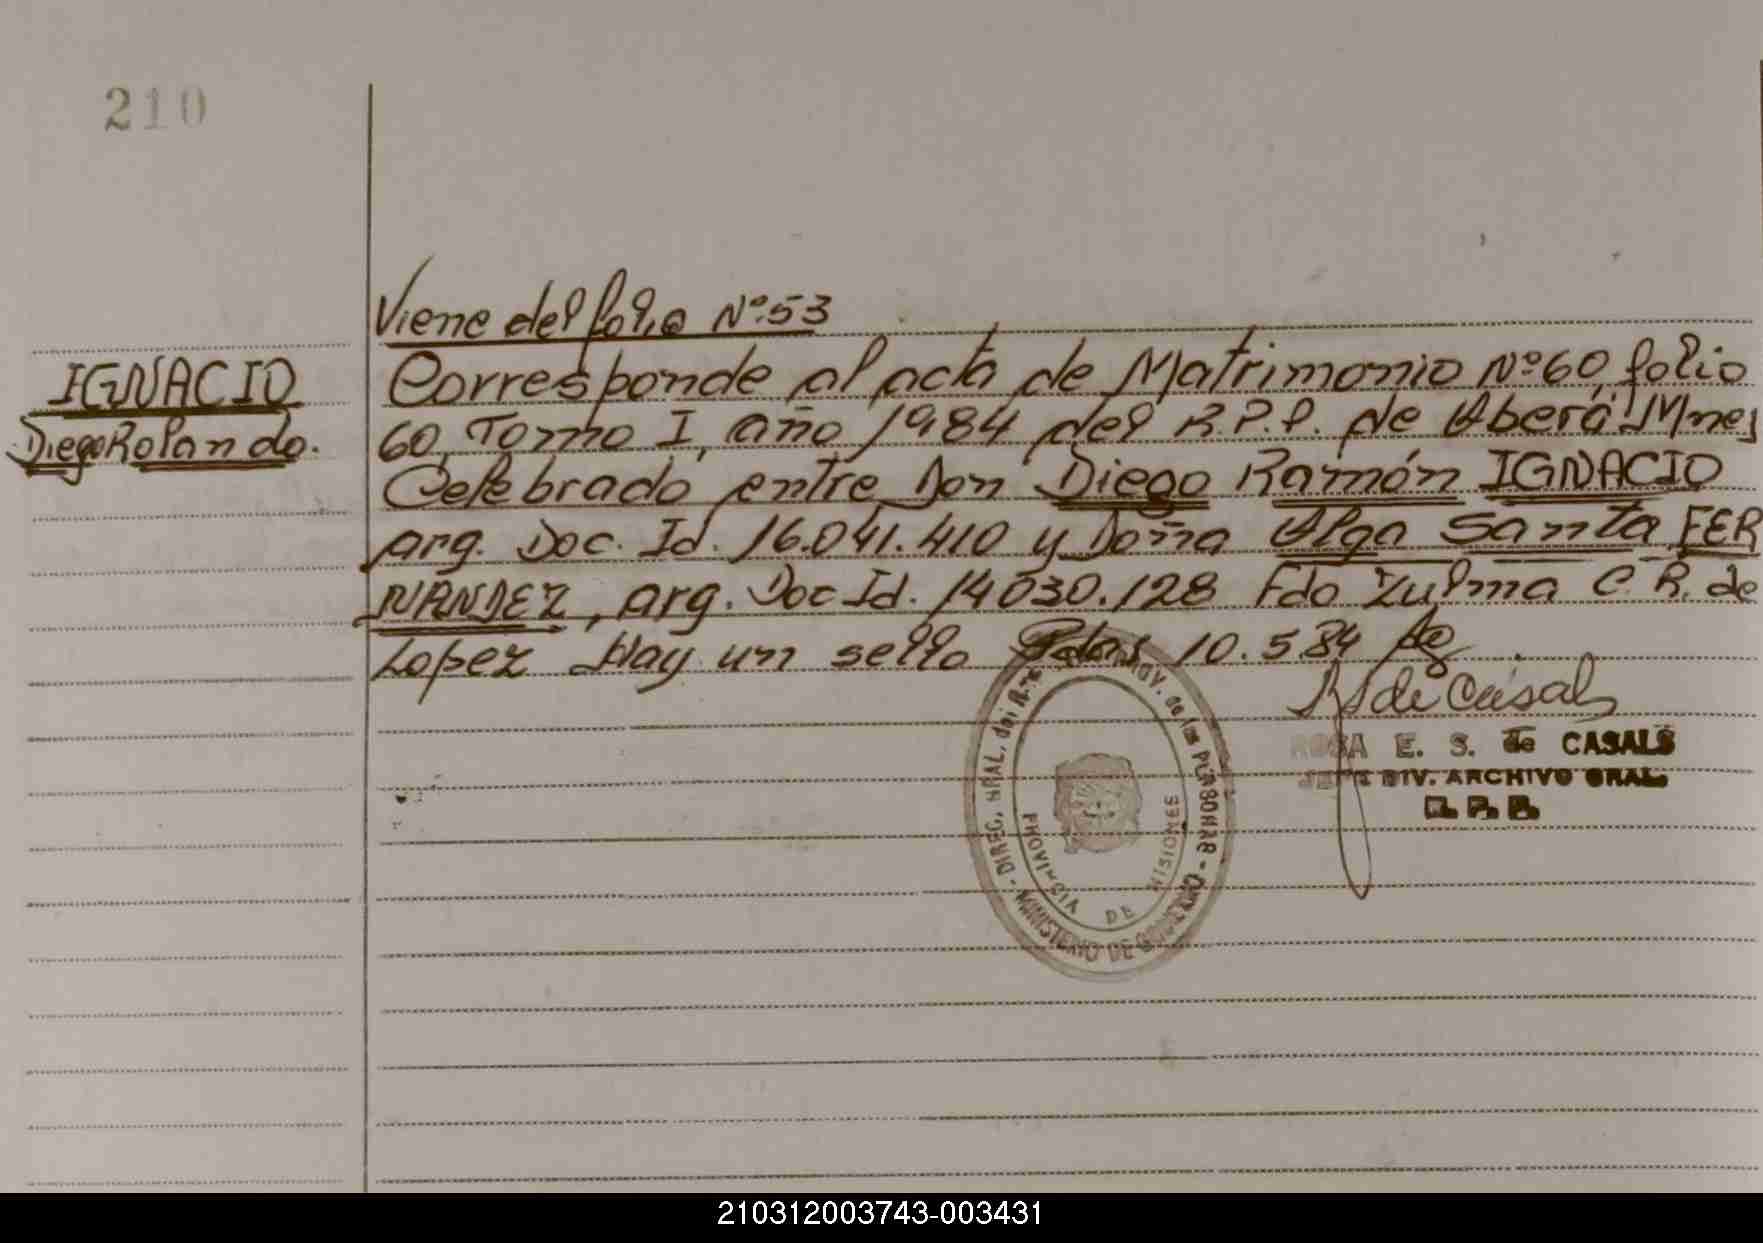 210
Viene del folio Nº 53
IGNACIO
Diego Rolando.
Corresponde al acta de Matrimonio Nº 60, folio
60, Tomo I, año 1984 del R.P.P. de Oberá Mnes
Celebrado entre Don Diego Ramón IGNACIO
arg. Doc. Id. 16.041.410 y Doña Olga Santa FER
NANDEZ, arg. Doc Id. 14030.128 Fdo Zulma C. R. de
Lopez Hay un sello Pdas 10.584
R S de Casals
ROSA E. S. de CASALS
JEFE DIV. ARCHIVO GRAL.
R. P. P.
DIREC. GRAL. del PROV. de las PERSONAS - MINISTERIO DE GOBIERNO
PROVINCIA DE MISIONES
210312003743-003431